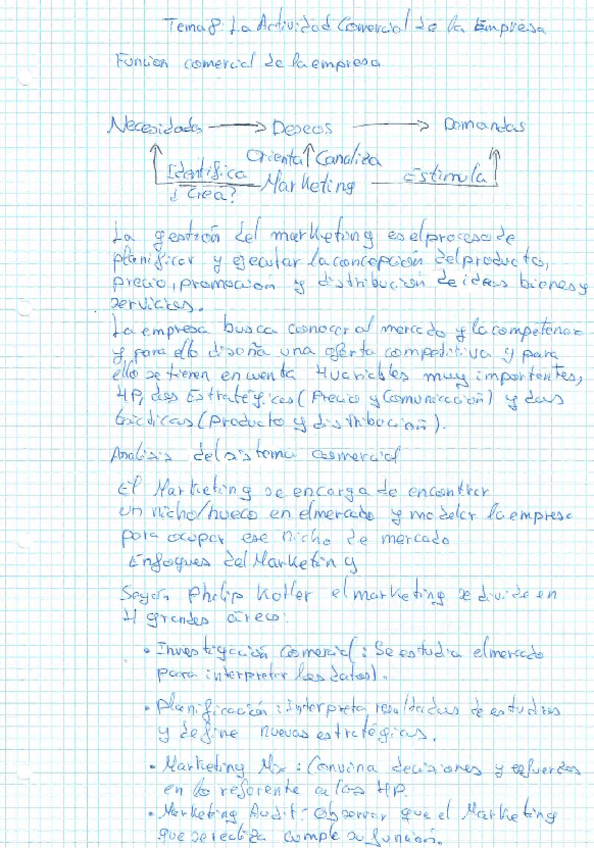 Tema 8: La Actividad Comercial de la Empresa
Función comercial de la empresa
Necesidades → Deseos → Demandas
Identifica Orienta Canaliza Estimula
¿Crea? Marketing
La gestión del marketing es el proceso de
planificar y ejecutar la concepcion del producto,
precio, promocion y distribución de ideas bienes y
servicios.
La empresa busca conocer al mercado y la competencia
y para ello diseña una oferta competitiva y para
ello se tienen en cuenta 4 variables muy importentes,
4P, dos Estratégicas (Precio y Comunicación) y dos
tácticas (Producto y distribución).
Analisis del sistema comercial
El Marketing se encarga de encontrar
un nicho/hueco en el mercado y modelar la empresa
para ocupar ese nicho de mercado
Enfoques del Marketing
Según Philip Kotler el marketing se divide en
4 grandes áreas:
• Investigación comercial: Se estudia el mercado
para interpretar los datos).
• Planificación: Interpreta resultados de estudios
y define nuevas estratégicas.
• Marketing Mix: Convina decisiones y esfuerzos
en lo referente a las 4P.
• Marketing Audit: Observar que el Marketing
que se realiza cumple su función.